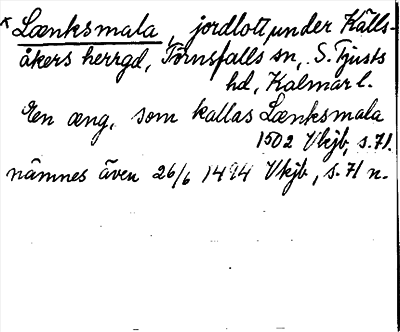 * Lænksmala, jordlott under Källs-
åkers herrgd, Törnsfalls sn, S. Tjusts
hd, Kalmar l.
en æng, som kallas Lænksmala
1502 Vkjb, s. 71.
nämnes även 26/6 1494 Vkjb, s. 71 n.